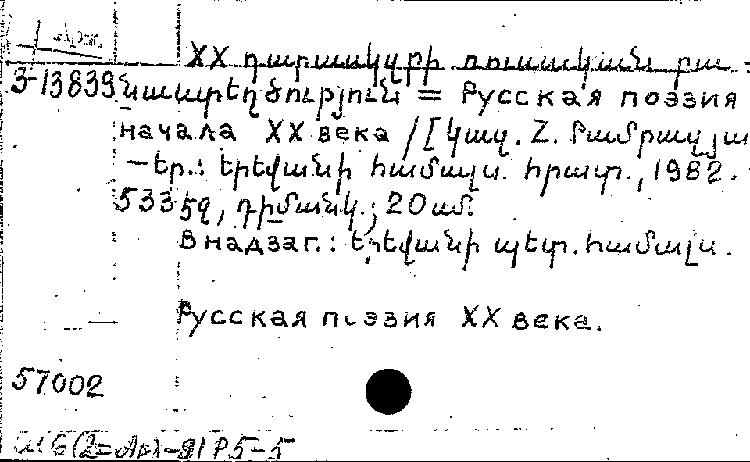 Арм.
XX դարասկզբի ռուսական բա-
3-13839 նաստեղծություն = Русская поэзия
начала XX века / [Կազ. Զ. Բամբակյա
— Եր.: Երևանի համալս. հրատ., 1982. -
533 էջ, դիմանկ.; 20 սմ.
В надзаг.: Երևանի պետ. համալս.
Русская поэзия XX века.
57002
(2=Ар)-91 Р5-5